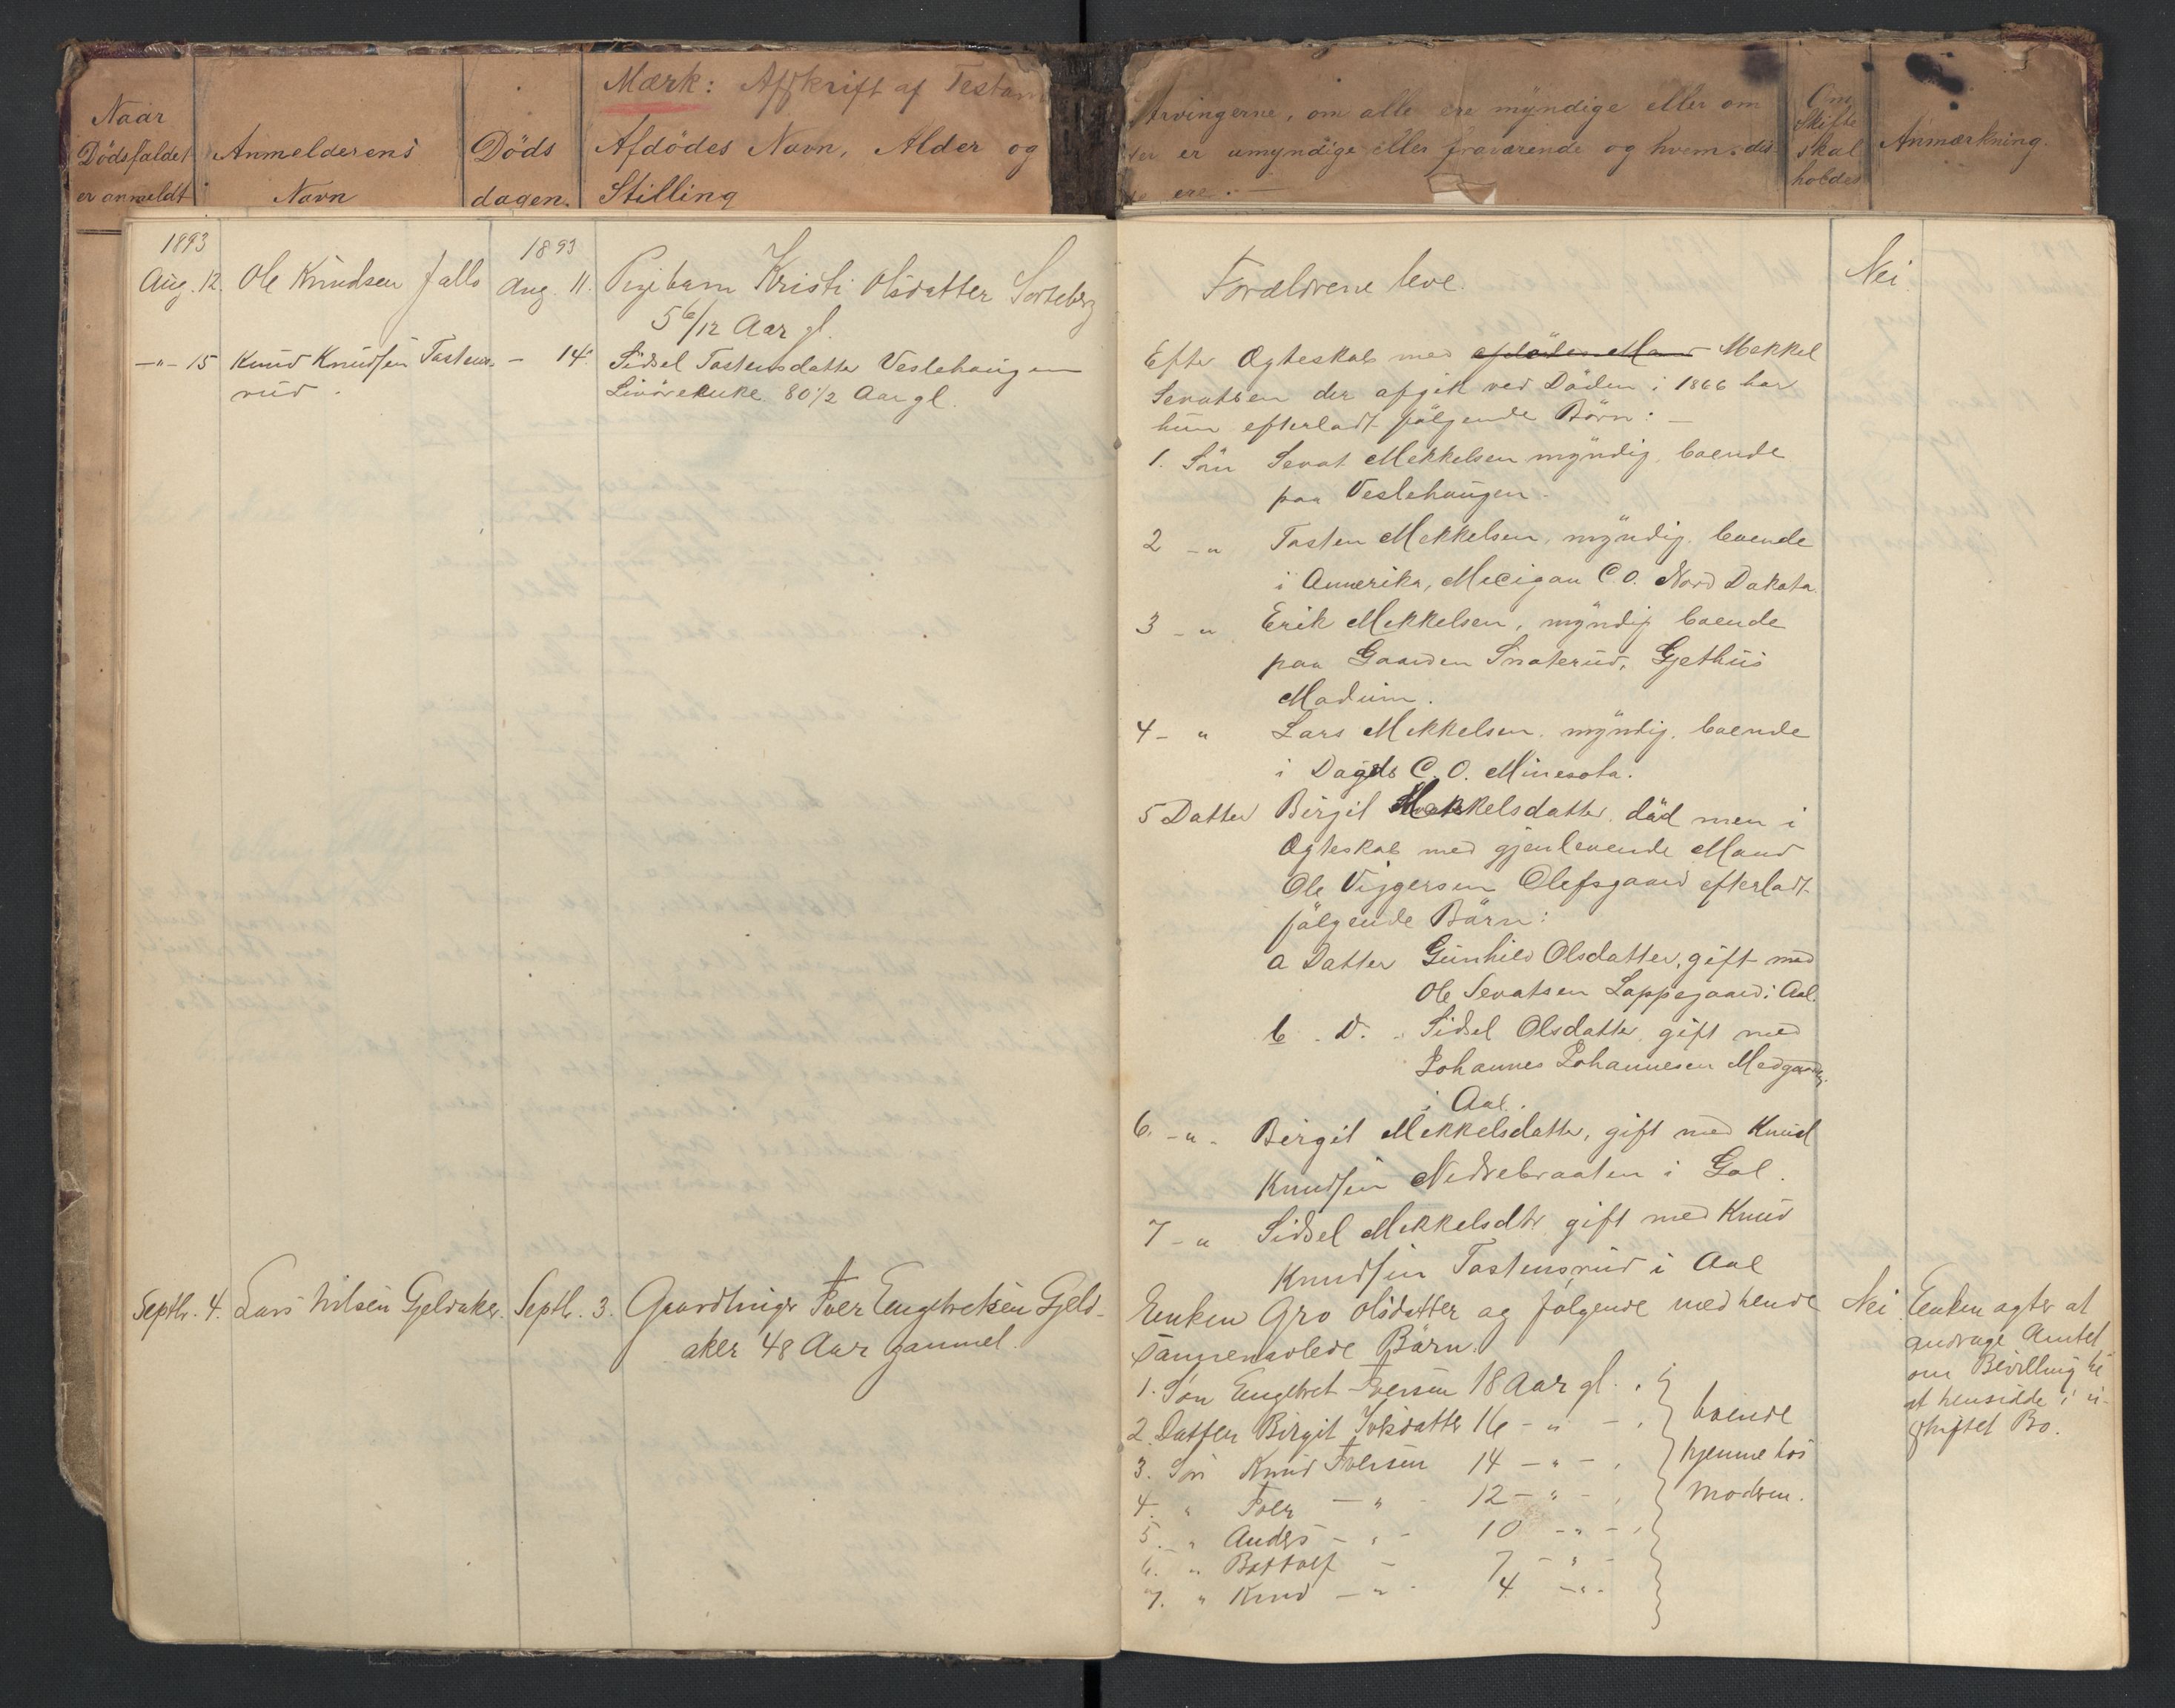 Mærk: Afskrift af Testam
Naar
Dödsfaldet
er anmeldt
Anmelderens
Navn
Döds
dagen.
Afdödes Navn, Alder og
Stilling
Arvingerne, om alle ere myndige eller om
er umyndige eller fraværende og hvem dis
ere.
Om
Skifte
skal
holdes
Anmærkning.
1893
1893
Aug. 12. Ole Knudsen Jalls Aug. 11. Pigebarn Kristi Olsdatter Sorteberg
5 6/12 Aar gl.
Forældrene leve.
Nei.
-"- 15 Knud Knudsen Tostens
rud.
- 14. Sidsel Tostensdatter Veslehaugen
80 1/2 Aar gl.
Efter Ægteskab med afdöde Mand Mekkel
Sevatsen der afgik ved Döden i 1866 har
hun efterladt fölgende Börn: -
1. Sön Sevat Mekkelsen myndig, boende
paa Veslehaugen.
2 -" Tosten Mekkelsen, myndig, boende
i Amerika, Mecigan C.O. Nord Dakota.
3 -" Erik Mekkelsen, myndig boende
paa Gaarden Snaterud, Gjethus
Modum.
4 -" Lars Mekkelsen, myndig, boende
i C.O. Minesota.
5 Datter Birgit Mekkelsdatter, död men i
Ægteskab med gjenlevende Mand
Ole Viggersen Olefsgaard efterladt
fölgende Börn:
a Datter Gunhild Olsdatter, gift med
Ole Sevatsen Loppegaard i Aal.
b. D. - Sidsel Olsdatter, gift med
Johannes Johannesen Medgaarden
i Aal.
6. -"- Birgit Mekkelsdatter, gift med Knud
Knudsen Nedrebraaten i Gol.
7 -" Sidsel Mekkelsdtr gift med Knud
Knudsen Tostensrud i Aal
Septbr. 4. Lars Nilsen Gjeldaker. Septbr. 3. Gaardbruger Iver Engebretsen Gjeld-
aker 48 Aar gammel.
Enken Gro Olsdatter og fölgende med hende
sammenavlede Börn.
1. Sön Engebret Iversen 18 Aar gl.
2. Datter Birgit Iversdatter 16 -"-
3. Sön Knud Iversen 14 -"-
4. " Iver -"- 12 -"-
5. " Anders -"- 10 -"-
6. " Bottolf - 7 -"-
7. " Knud -"- 4 -"-
boende
hjemme hos
Moderen.
Nei.
Enken agter at
andrage Amtet
om Bevilling til
at hensidde i u-
skiftet Bo.